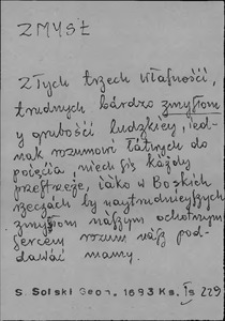 ZMYSŁ
Z Tych trzech własności,
trudnych bárdzo zmysłom
y grubości ludzkiey, ied-
nák rozumowi łátwych do
poięcia, niech się káżdy
przestrzeże, iáko w Boskich
rzeczách by naytrudnieyszych
zmysłom nászym ochotnym
sercem rozum nász pod-
dawáć mamy.
S. Solski Geom. 1683 Ks. Is 229